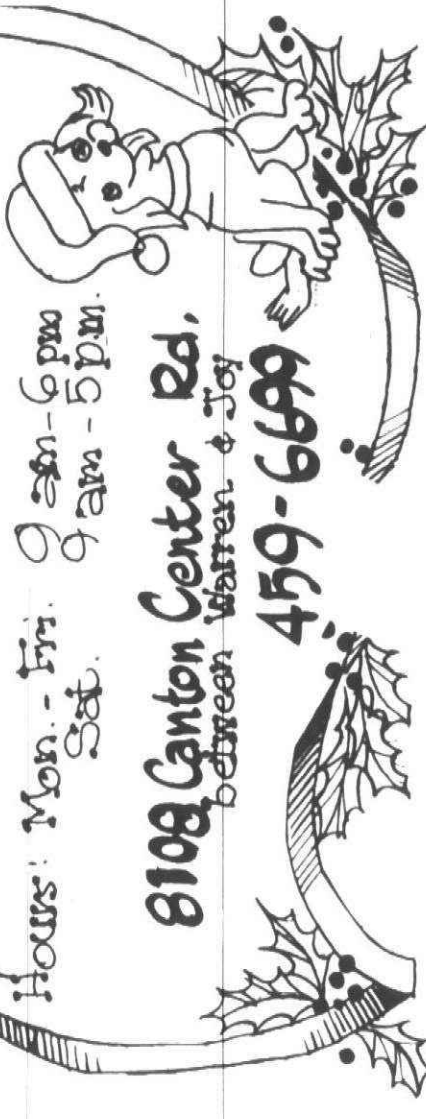 Hours: Mon.-Fri. 9 am-6pm
Sat. 9am-5pm.
8108 Canton Center Rd.
between Warren & Joy
459-6699